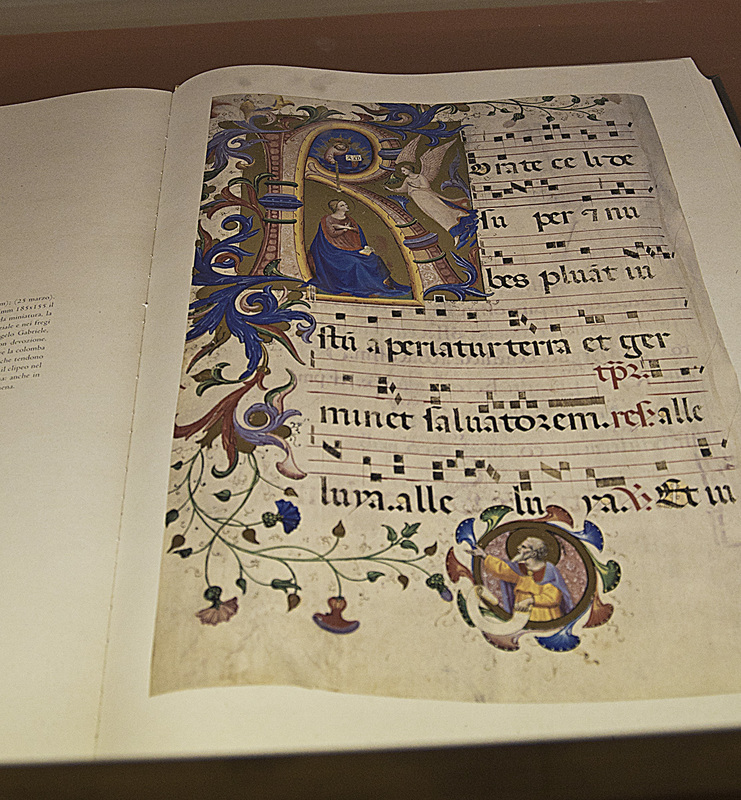 (25 marzo).
mm 185x155 il
la miniatura, la
fregi
Gabriele,
devozione.
la colomba
che tendono
il clipeo nel
anche in
R orate ce li de
su per ⁊ nu
bes pluāt iu
stū a periatur terra et ger
tp̄r.
minet saluatorem. res: alle
luya. alle lu ya. V. Et iu